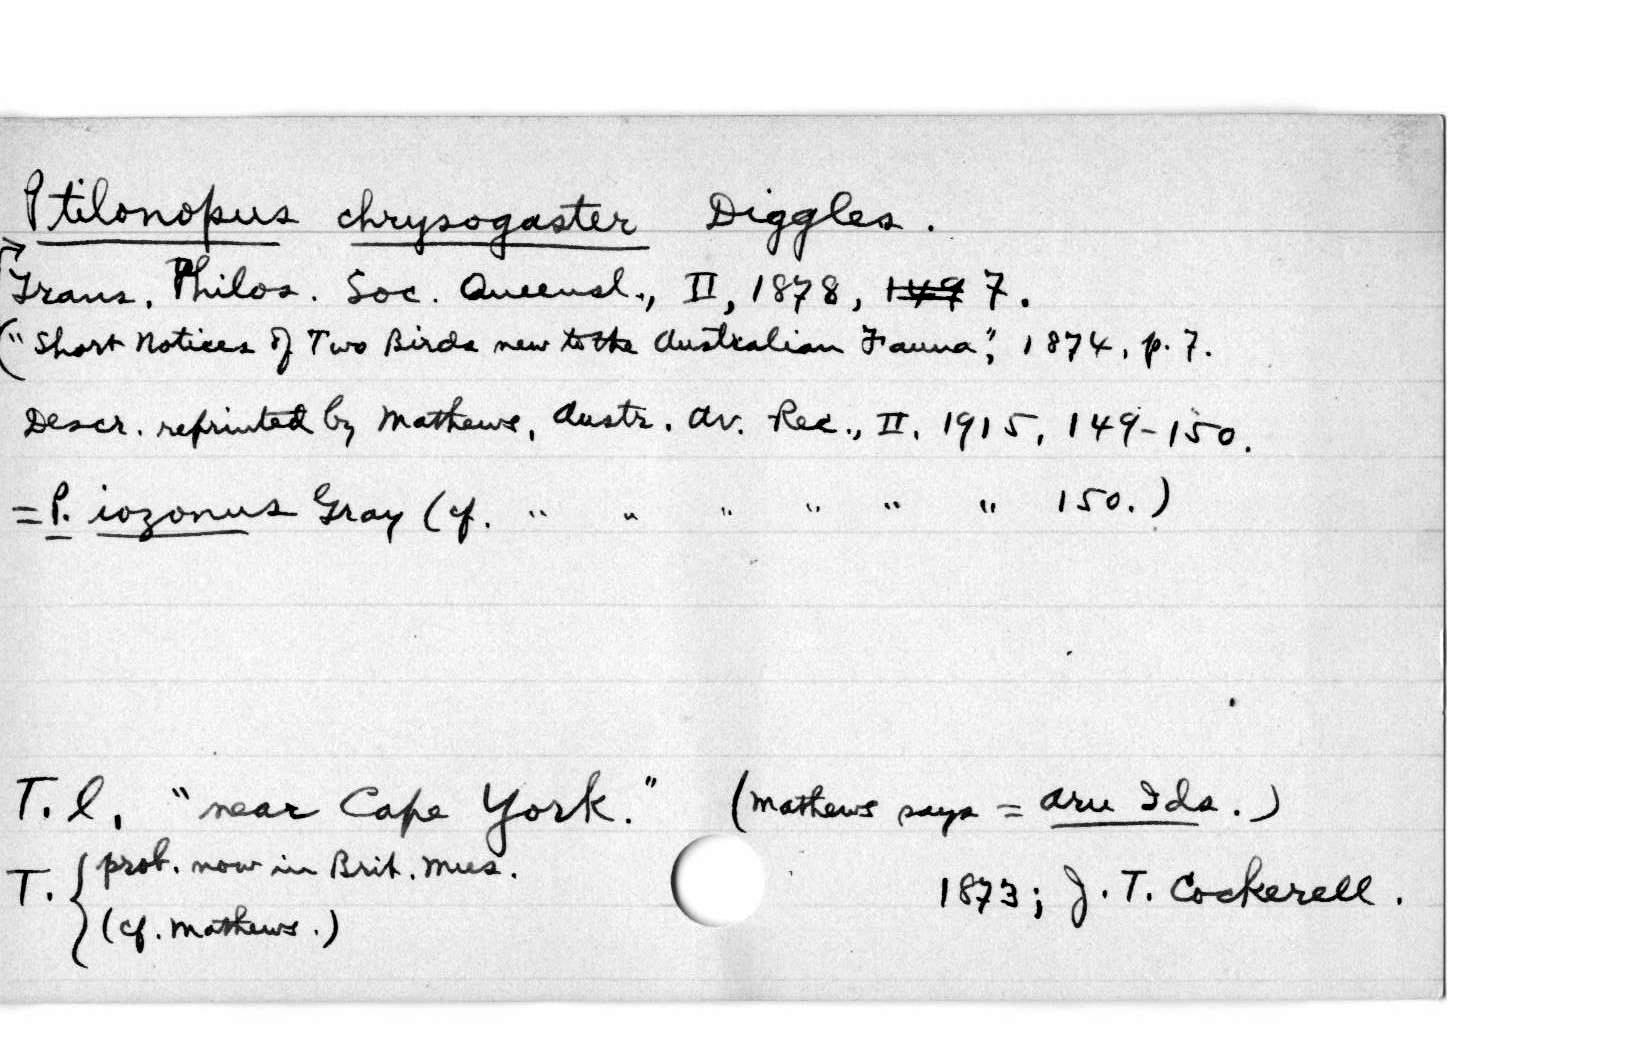 Ptilonopus chrysogaster Diggles.
Trans. Philos. Soc. Queensl., II, 1878, 149 7.
("Short Notices of Two Birds new to the Australian Fauna", 1874, p. 7.
Descr. reprinted by Mathews, Austr. Av. Rec., II, 1915, 149-150.
= P. iozonus Gray (cf. " " " " " " 150.)
T. l. "near Cape York." (Mathews says = Aru Ids.)
T. { prob. now in Brit. Mus.
(cf. Mathews.)
1873; J. T. Cockerell.